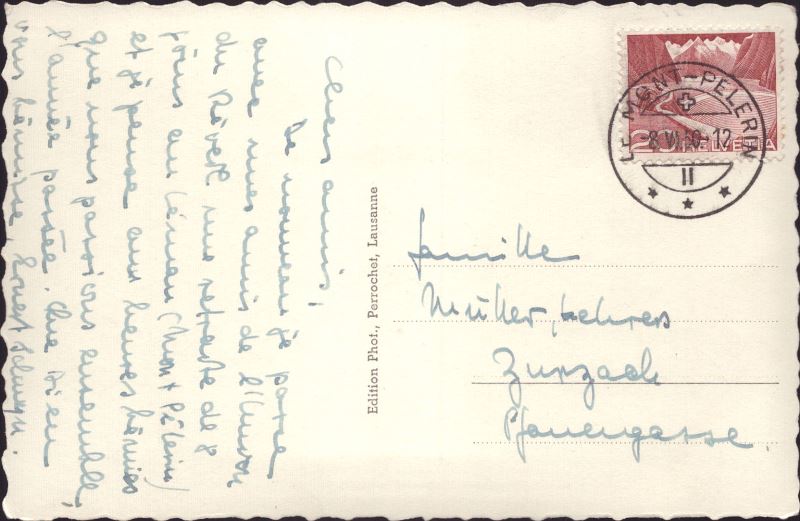 Chers amis,
De nouveau je passe
avec mes amis de l'Union
du Réveil une retraite de 8
jours au Léman (Mont Pélerin)
et je pense aux heures bénies
que nous passions ensemble
l'année passée. Que Dieu
vous bénisse,
Edition Phot., Perrochet, Lausanne
20 HELVETIA
LE MONT-PELERIN
-8.VI.50.-12
II
Familie
Müller, Lehrers
Zurzach
Pfauengasse.